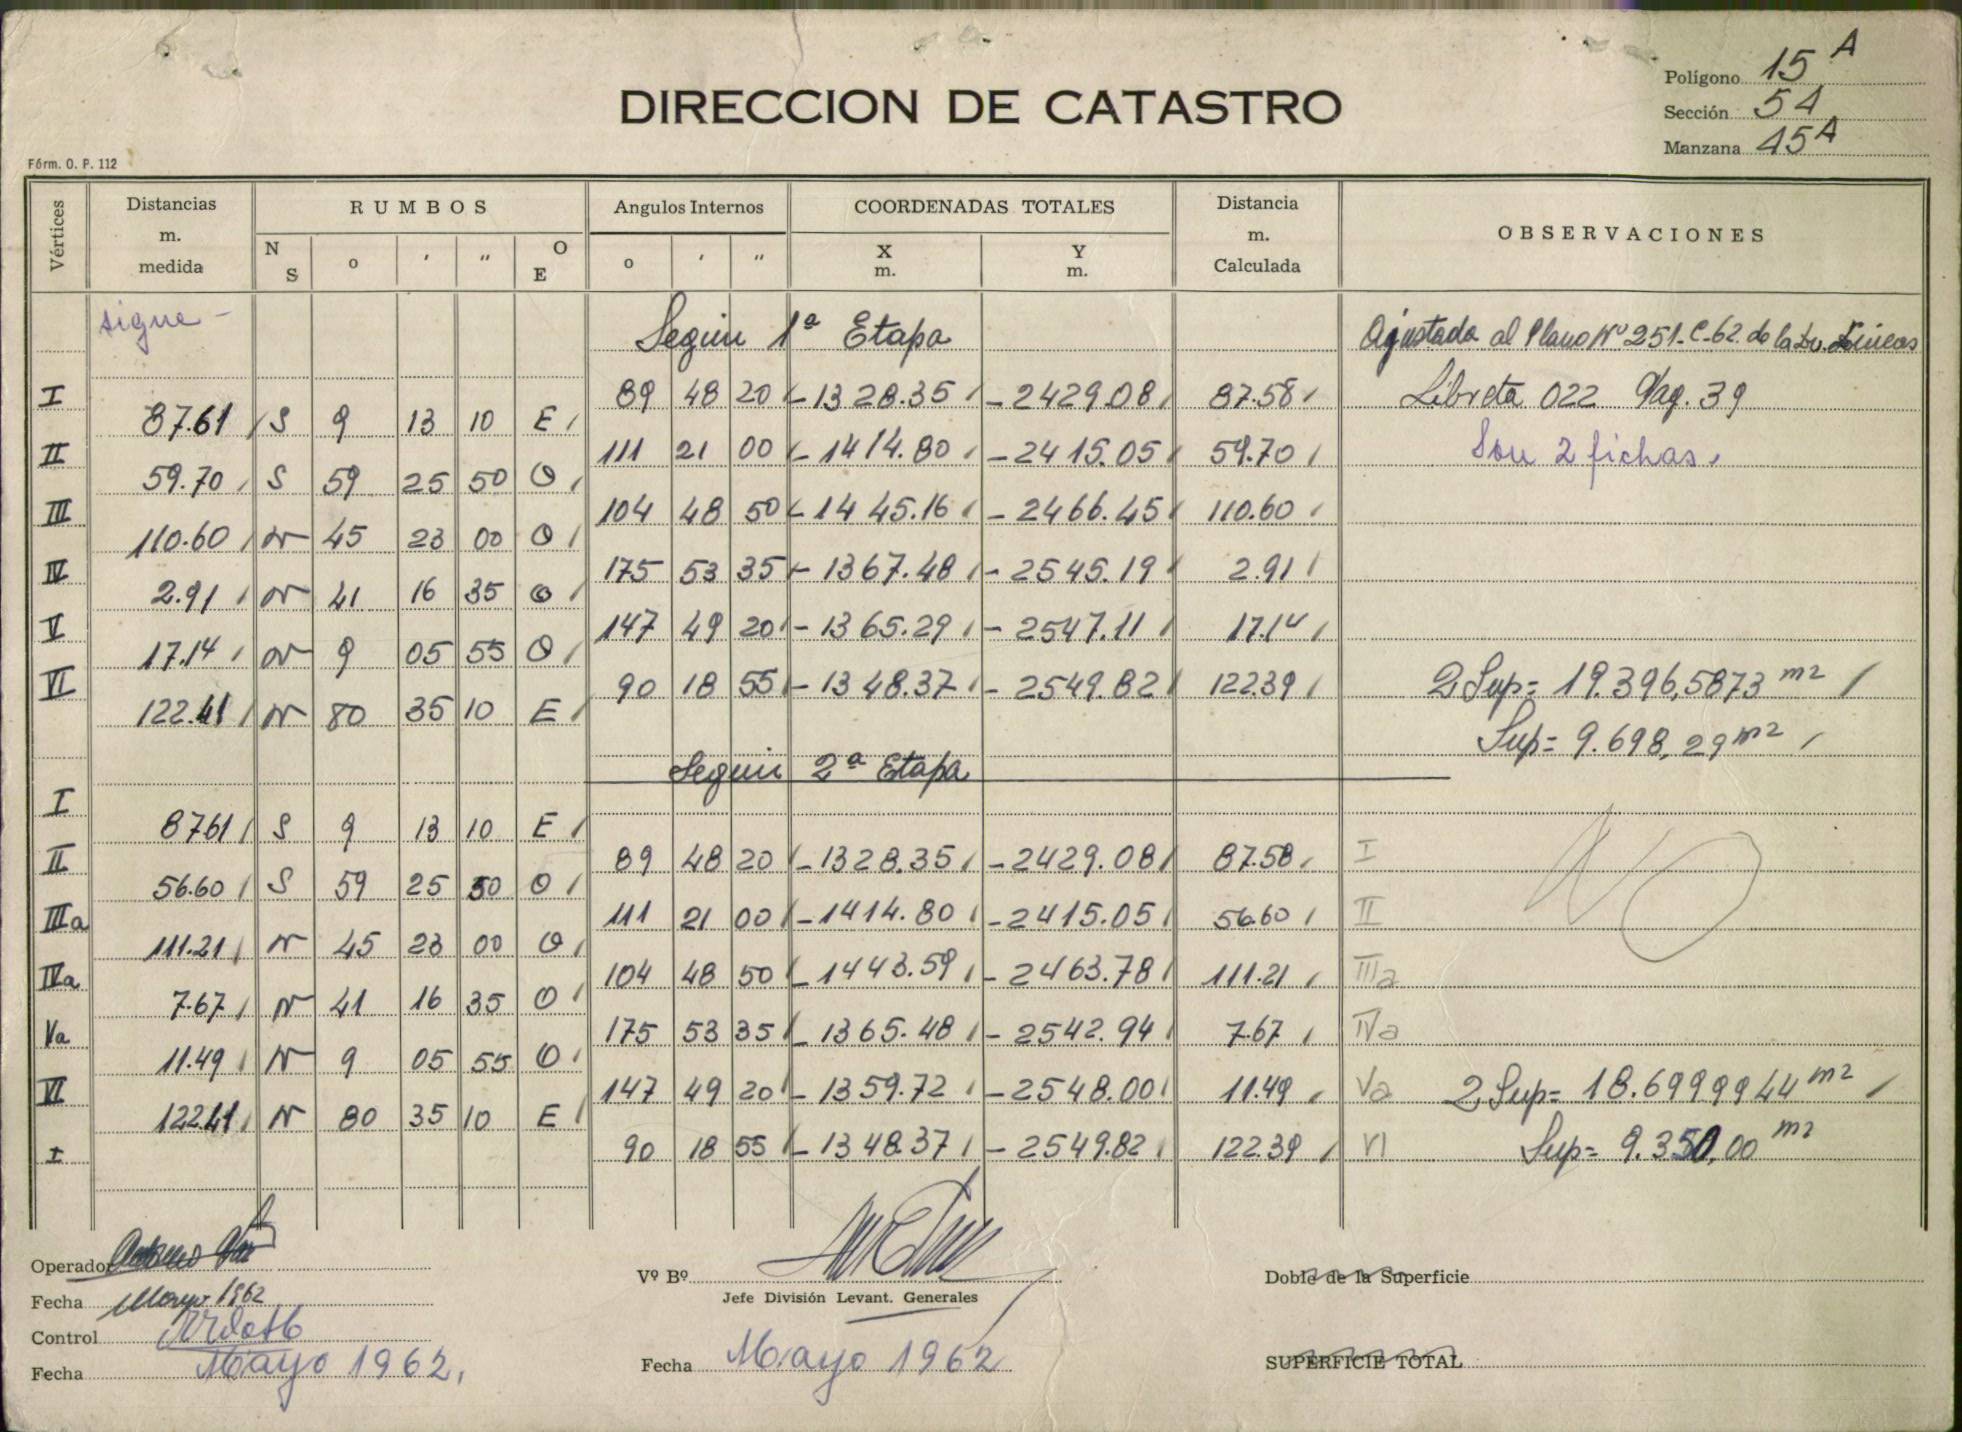 Polígono 15 A
Sección 54
Manzana 45A
DIRECCION DE CATASTRO
Fórm. O. P. 112
Vértices Distancias m. medida RUMBOS N S o ′ ″ O E Angulos Internos o ′ ″ COORDENADAS TOTALES X m. Y m. Distancia m. Calculada OBSERVACIONES
sigue - Según 1ª Etapa Ajustada al Plano Nº 251-C-62 de la Líneas
I 89 48 20 - 1328.35 - 2429.08 87.58 Libreta 022 Pag. 39
87.61 S 9 13 10 E
II 111 21 00 - 1414.80 - 2415.05 59.70 Son 2 fichas.
59.70 S 59 25 50 O
III 104 48 50 - 1445.16 - 2466.45 110.60
110.60 N 45 23 00 O
IV 175 53 35 - 1367.48 - 2545.19 2.91
2.91 N 41 16 35 O
V 147 49 20 - 1365.29 - 2547.11 17.14
17.14 N 9 05 55 O
VI 90 18 55 - 1348.37 - 2549.82 122.39 2 Sup= 19.396,5873 m2
122.41 N 80 35 10 E
Sup= 9.698,29 m2
Según 2ª Etapa
I
87.61 S 9 13 10 E
II 89 48 20 - 1328.35 - 2429.08 87.58 I
56.60 S 59 25 50 O
IIIa 111 21 00 - 1414.80 - 2415.05 56.60 II
111.21 N 45 23 00 O
IVa 104 48 50 - 1443.59 - 2463.78 111.21 IIIa
7.67 N 41 16 35 O
Va 175 53 35 - 1365.48 - 2542.94 7.67 IVa
11.49 N 9 05 55 O
VI 147 49 20 - 1359.72 - 2548.00 11.49 Va 2 Sup= 18.699,9944 m2
122.41 N 80 35 10 E
I 90 18 55 - 1348.37 - 2549.82 122.39 VI Sup= 9.350,00 m2
NO
Operador
Fecha Mayo 1962
Control
Fecha Mayo 1962,
Vº Bº
Jefe División Levant. Generales
Fecha Mayo 1962
Doble de la Superficie
SUPERFICIE TOTAL